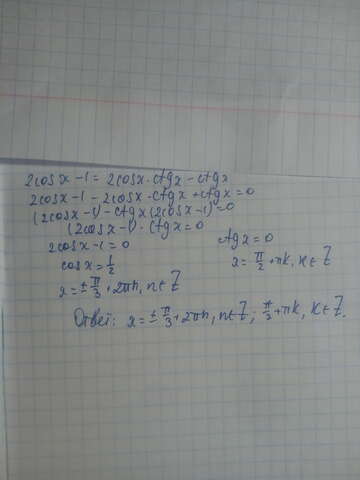 2cosx-1=2cosx·ctgx-ctgx
2cosx-1-2cosx·ctgx+ctgx=0
(2cosx-1)-ctgx(2cosx-1)=0
(2cosx-1)·ctgx=0
2cosx-1=0 ctgx=0
cosx=1/2 x=π/2+πk, k∈Z
x=±π/3+2πn, n∈Z
Ответ: x=±π/3+2πn, n∈Z; π/2+πk, k∈Z.